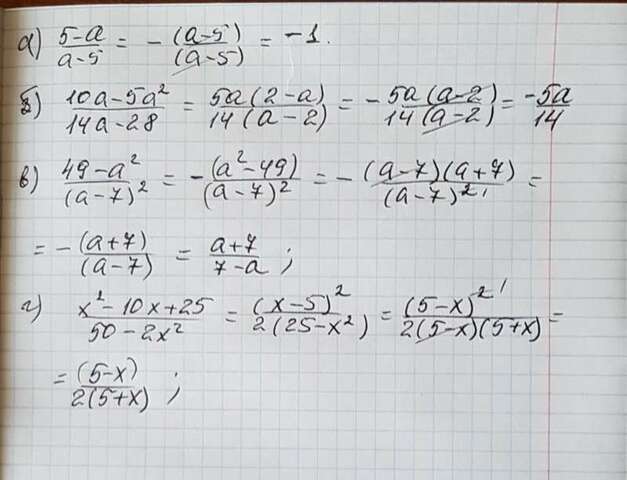 а) (5-a)/(a-5) = -(a-5)/(a-5) = -1.
б) (10a-5a²)/(14a-28) = 5a(2-a)/14(a-2) = -5a(a-2)/14(a-2) = -5a/14
в) (49-a²)/(a-7)² = -(a²-49)/(a-7)² = -(a-7)(a+7)/(a-7)² =
= -(a+7)/(a-7) = (a+7)/(7-a) ;
г) (x²-10x+25)/(50-2x²) = (x-5)²/2(25-x²) = (5-x)²/2(5-x)(5+x) =
= (5-x)/2(5+x) ;